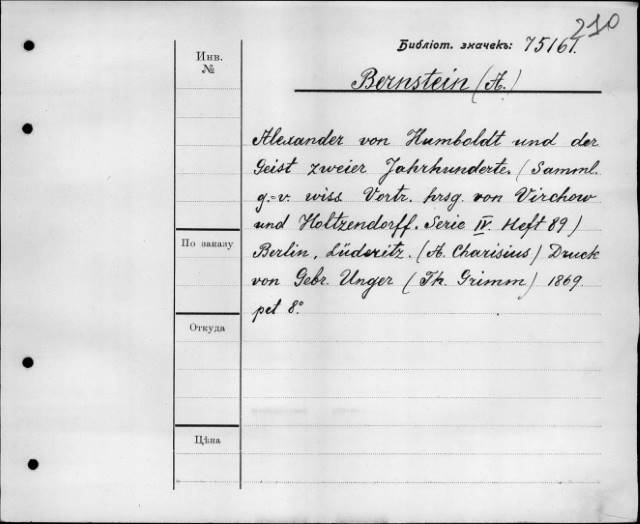 210
Библіот. значекъ: 75161.
Инв.
№
Bernstein (A.)
Alexander von Humboldt und der
Geist zweier Jahrhunderte. (Samml.
g.-v. wiss. Vortr. hrsg. von Virchow
und Holtzendorff. Serie IV. Heft 89)
По заказу
Berlin, Lüderitz. (A. Charisius) Druck
von Gebr. Unger (Th. Grimm) 1869.
pet 8°.
Откуда
Цѣна